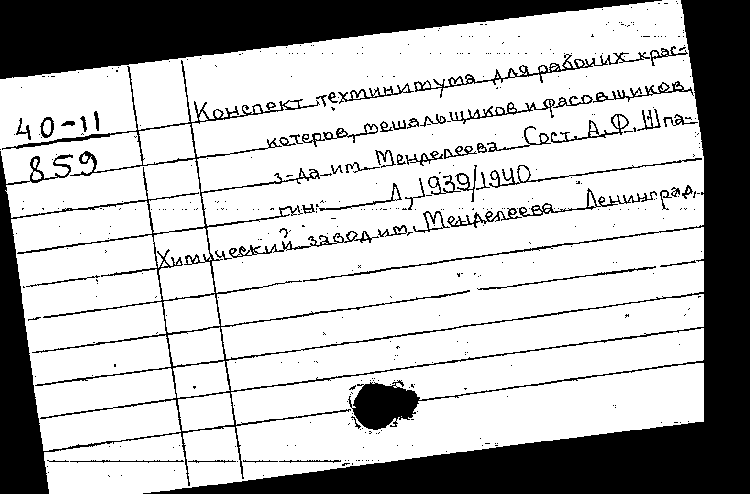 40-11
859
Конспект техминимума для рабочих крас-
котеров, мешальщиков и фасовщиков
з-да им. Менделеева. Сост. А. Ф. Шпа-
гин. Л, 1939/1940
Химический завод им. Менделеева Ленинград.